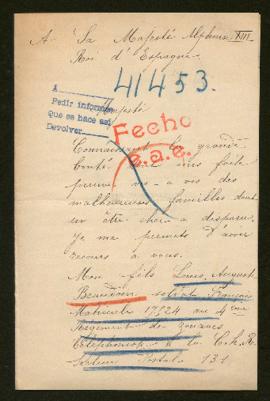 A Sa Majesté Alphonse XIII
Roi d'Espagne
41453.
A
Pedir informes
Que se hace así
Devolver
Majesté
Fecho
e.a.e.
Connaissant la grande
bonté dont
vis des
malheureuses familles dont
un être cher a disparu,
je me permets d'avoir
recours à vous.
Mon fils Louis, August
soldat Français
Matricule 17524 au 4ème
Régiment de zouaves
Téléphoniste à la C.H.R.
Secteur Postale 131